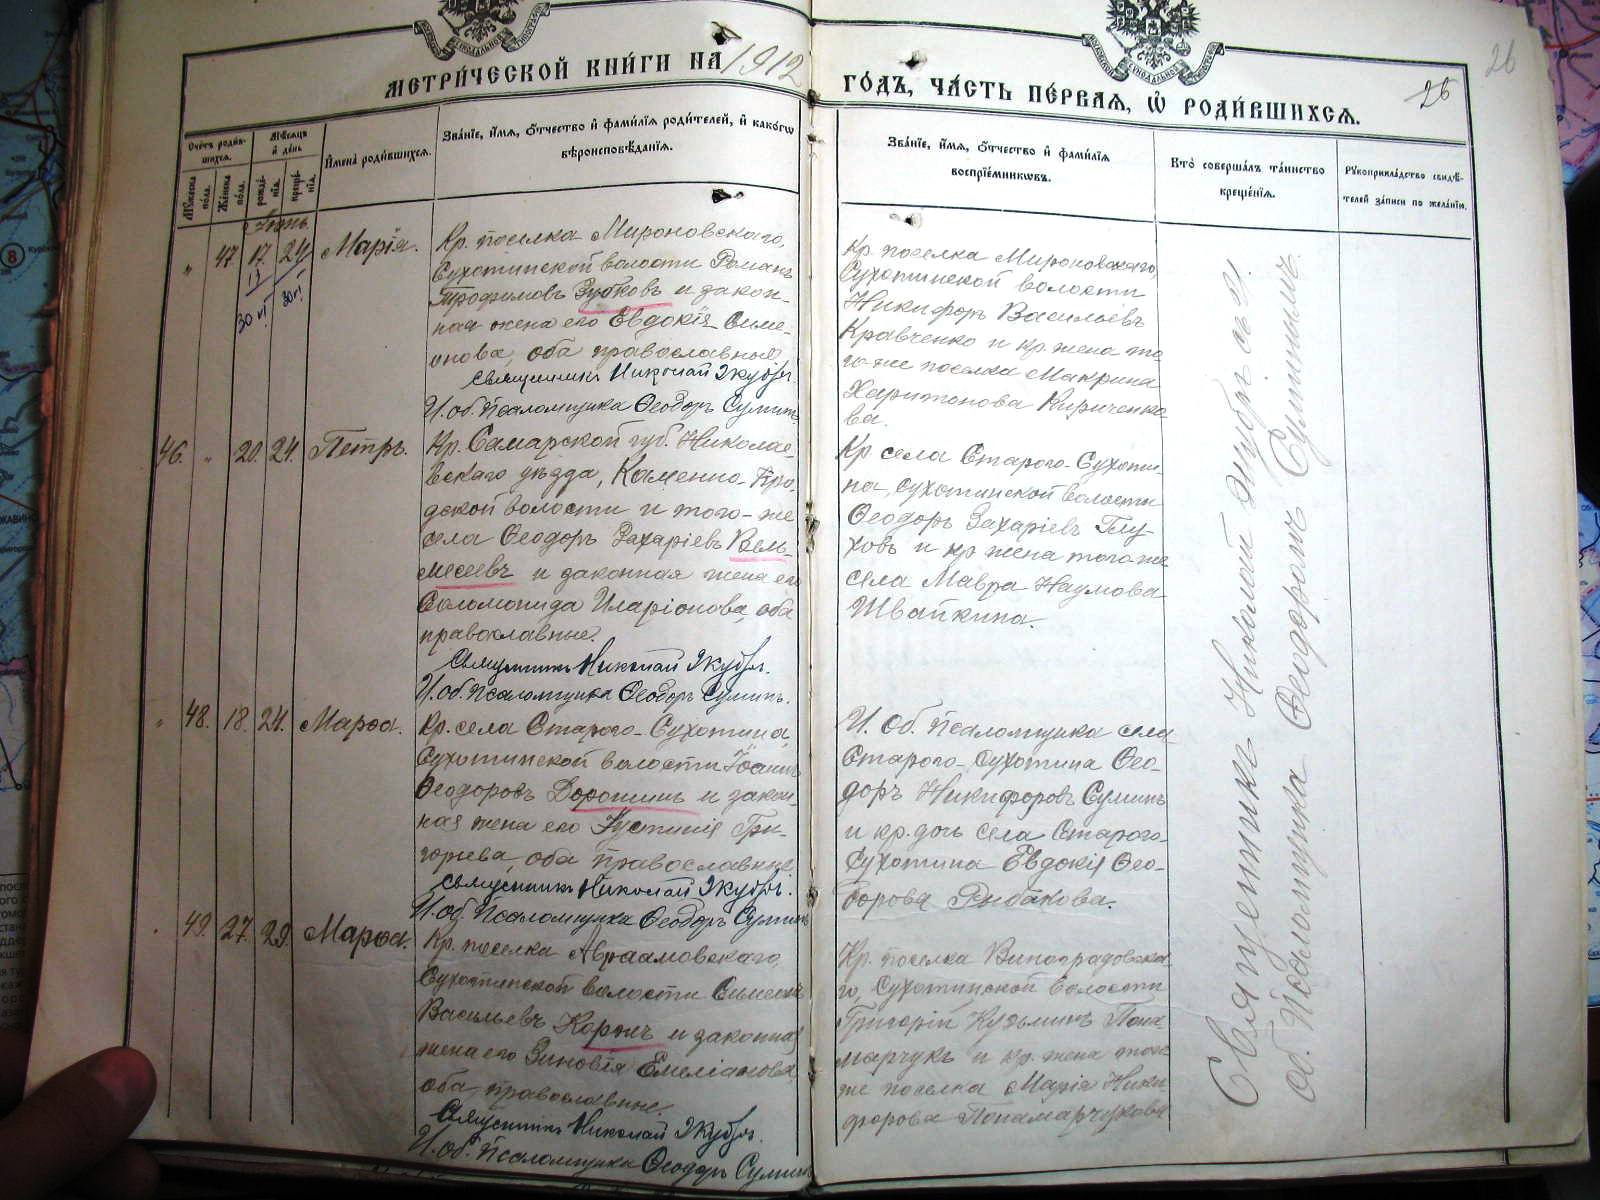 МЕТРИ́ЧЕСКОЙ КНИ́ГИ НА 1912
ГО́ДЪ, ЧА́СТЬ ПЕ́РВАЯ, Ѽ РОДИ́ВШИХСЯ.
26
26
Сче́тъ роди́в-
шихся.
Мѣ́сяцъ
и҆ де́нь
Мꙋ́жеска
по́ла.
Же́нска
по́ла.
рожде́-
нїѧ.
креще́-
нїѧ.
И҆мена̀ роди́вшихся.
Зва́нїе, и҆́мя, ѻ҆́тчество и҆ фами́лїя роди́телей, и҆ како́гѡ
вѣроисповѣ́данїя.
Зва́нїе, и҆́мя, ѻ҆́тчество и҆ фами́лїя
воспрїе́мникѡвъ.
Кто̀ соверша́лъ та́инство
креще́нїя.
Рꙋкоприкла́дство свидѣ́-
телей за́писи по жела́нїю.
Іюнь
" 47 17. 24 Марія.
Кр. поселка Мироновскаго,
Сухотинской волости Романъ
Трофимовъ Зубковъ и закон-
ная жена его Евдокія Симе-
онова, оба православные
Священникъ Николай
И. об. Псаломщика Ѳеодоръ Суминъ
Кр. поселка Мироновскаго
Сухотинской волости
Никифоръ Васильевъ
Кравченко и кр. жена то
го-же поселка Макрина
Харитонова Кириченко
ва.
30 VI 30 VI
46. " 20. 24. Петръ.
Кр. Самарской губ. Николае-
вскаго уѣзда, Каменно-Бро-
дской волости и того-же
села Ѳеодоръ Захаріевъ Вель-
месевъ и законная жена его
Соломонида Иларіонова, оба
православные.
Священникъ Николай
И. об. Псаломщика Ѳеодоръ Суминъ.
Кр села Старого-Сухоти-
на, Сухотинской волости
Ѳеодоръ Захаріевъ Глу-
ховъ и кр жена того же
села Мавра Наумова
Швайкина.
" 48. 18. 24. Марѳа.
Кр. села Старого-Сухотина,
Сухотинской волости Іоаннъ
Ѳеодоровъ Доронинъ и закон-
ная жена его Іустинія Гри-
горьева, оба православные
Священникъ Николай
И. об. Псаломщика Ѳеодоръ Суминъ
И. об. Псаломщика села
Старого-Сухотина Ѳео-
доръ Никифоровъ Суминъ
и кр. дочь села Старого-
Сухотина Евдокія Ѳео-
дорова Рыбакова.
49. 27. 29. Марѳа.
Кр. поселка Авраамовскаго,
Сухотинской волости Симеонъ
Васильевъ Коржъ и законная
жена его Зиновія Емеліанова,
оба православные.
Священникъ Николай
И. об. Псаломщика Ѳеодоръ Суминъ
Кр. поселка Виноградовска
го, Сухотинской волости
Григорій Кузьминъ Пона
марчукъ и кр. жена того
же поселка Марія Ники
форова Понамарчукова
Священникъ Николай
об. Псаломщика Ѳеодоромъ Суминымъ.